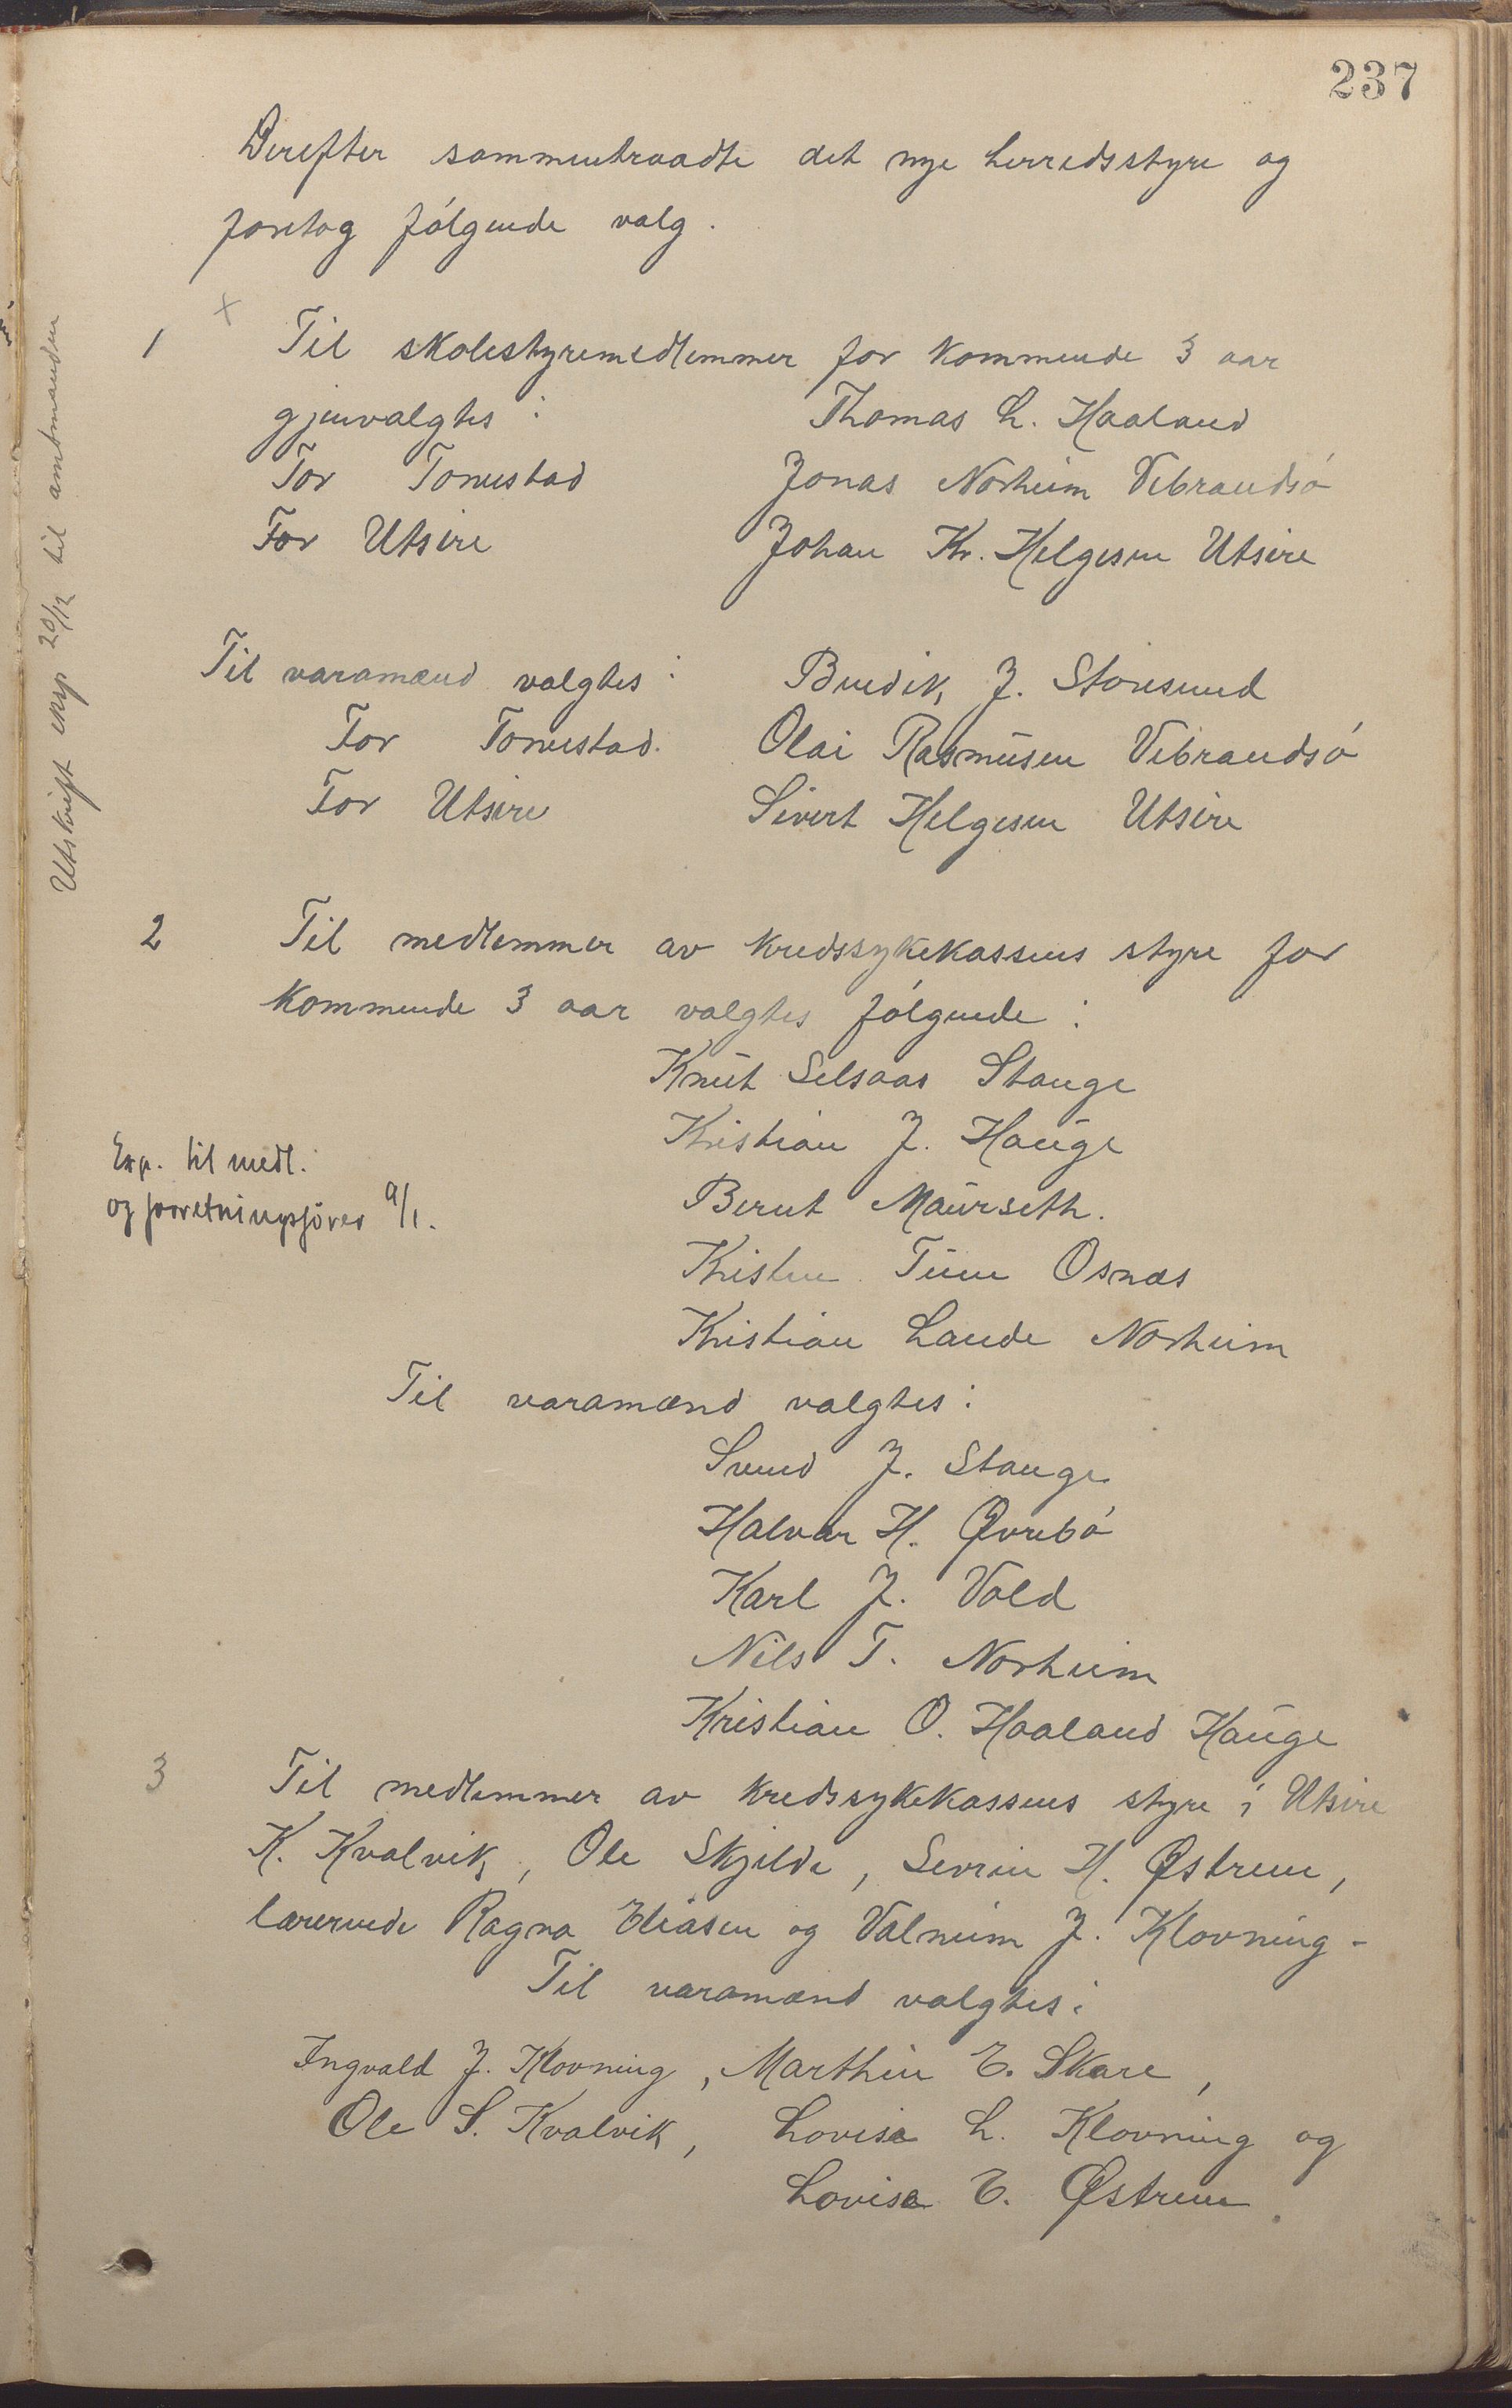 237
Derefter sammentraadte det nye herredsstyre og
foretog følgende valg.
x
1 Til skolestyremedlemmer for kommende 3 aar
gjenvalgtes : Thomas L. Haaland
For Torvestad Jonas Norheim Vibrandsö
For Utsire Johan Kr. Helgesen Utsire
Til varamænd valgtes : Bendik J. Storesund
For Torvestad. Olai Rasmusen Vibrandsö
For Utsire Sivert Helgesen Utsire
Utskrift eksp 20/12 til amtmanden
2 Til medlemmer av kredssykekassens styre for
kommende 3 aar valgtes følgende :
Knut Selsaas Stange
Kristian J. Hauge
Exp. til medl.
og forretningsfører 9/1.
Bernt Maurseth.
Kristen Tuen Osnæs
Kristian Lande Norheim
Til varamænd valgtes :
Svend J. Stange
Halvar H. Øvrebö
Karl J. Vold
Nils T. Norheim
Kristian O. Haaland Hauge
3 Til medlemmer av kredssykekassens styre i Utsire
K. Kvalvik, Ole Skjelde, Sevrin H. Østrem,
lærerinde Ragna Eliasen og Valneim J. Klovning -
Til varamænd valgtes :
Ingvald J. Klovning, Marthin E. Skare,
Ole S. Kvalvik, Lovise L. Klovning og
Lovise E. Østrem.